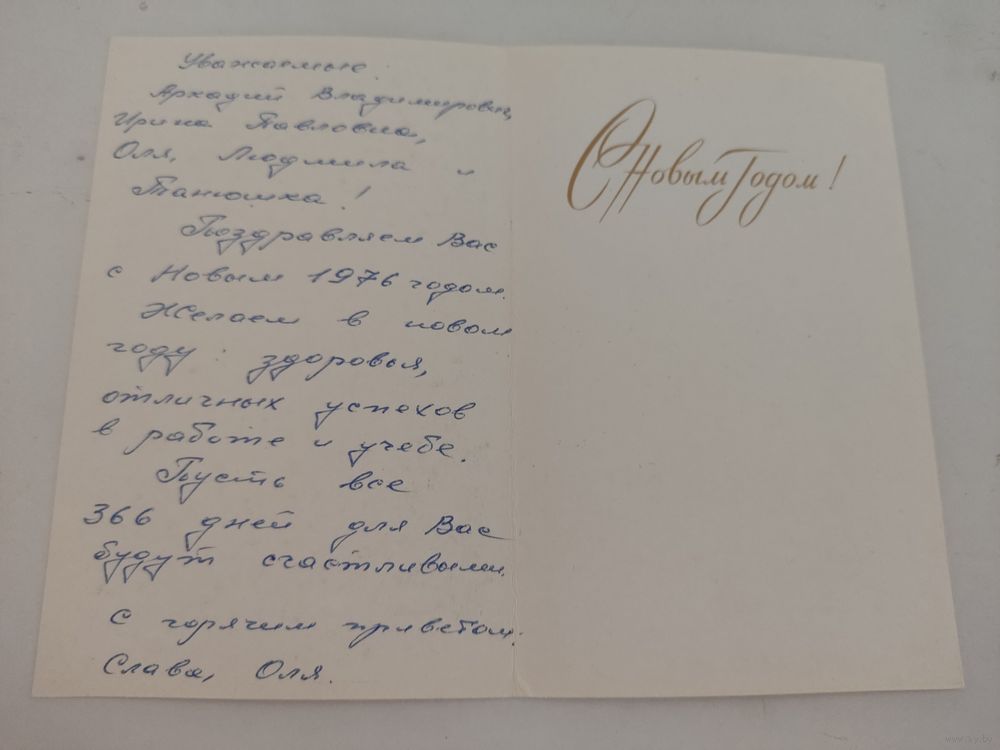 Уважаемые:
Аркадий Владимирович,
Ирина Павловна,
Оля, Людмила и
Танюшка!
Поздравляем Вас
с Новым 1976 годом.
Желаем в новом
году: здоровья,
отличных успехов
в работе и учебе.
Пусть все
366 дней для Вас
будут счастливыми.
С горячим приветом.
Слава, Оля.
С Новым Годом!